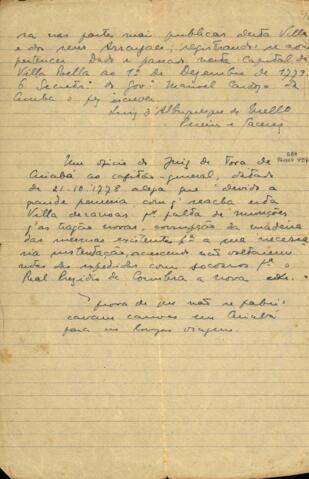 ra nas partes mais publicas desta Villa
e dos seus Arrayaes, registrando-se aonde
pertencer. Dado e passado nesta Capital de
Villa Bella ao 1º de Dezembro de 1773
O Secretrº do Govº Manoel Cardoso da
Cunha o fez escrever
Luiz d'Albuquerque de Mello
Pereira e Caceres
Um oficio do Juiz de Fora de
Cuiabá ao capitão-general, datado
de 21-10-1778 alega que "devido a
grande penuria com q' se acha esta
Villa de canoas pª falta de
novas, corrupção da madeira
das mesmas existentes, pª a sua
ria sustentação, acrescendo não voltarem
das expedidas com socorros pª o
Real Presidio de Coimbra a nova etc.
prova de que não se fabri-
cavam canoas em Cuiabá
para as longas viagens.